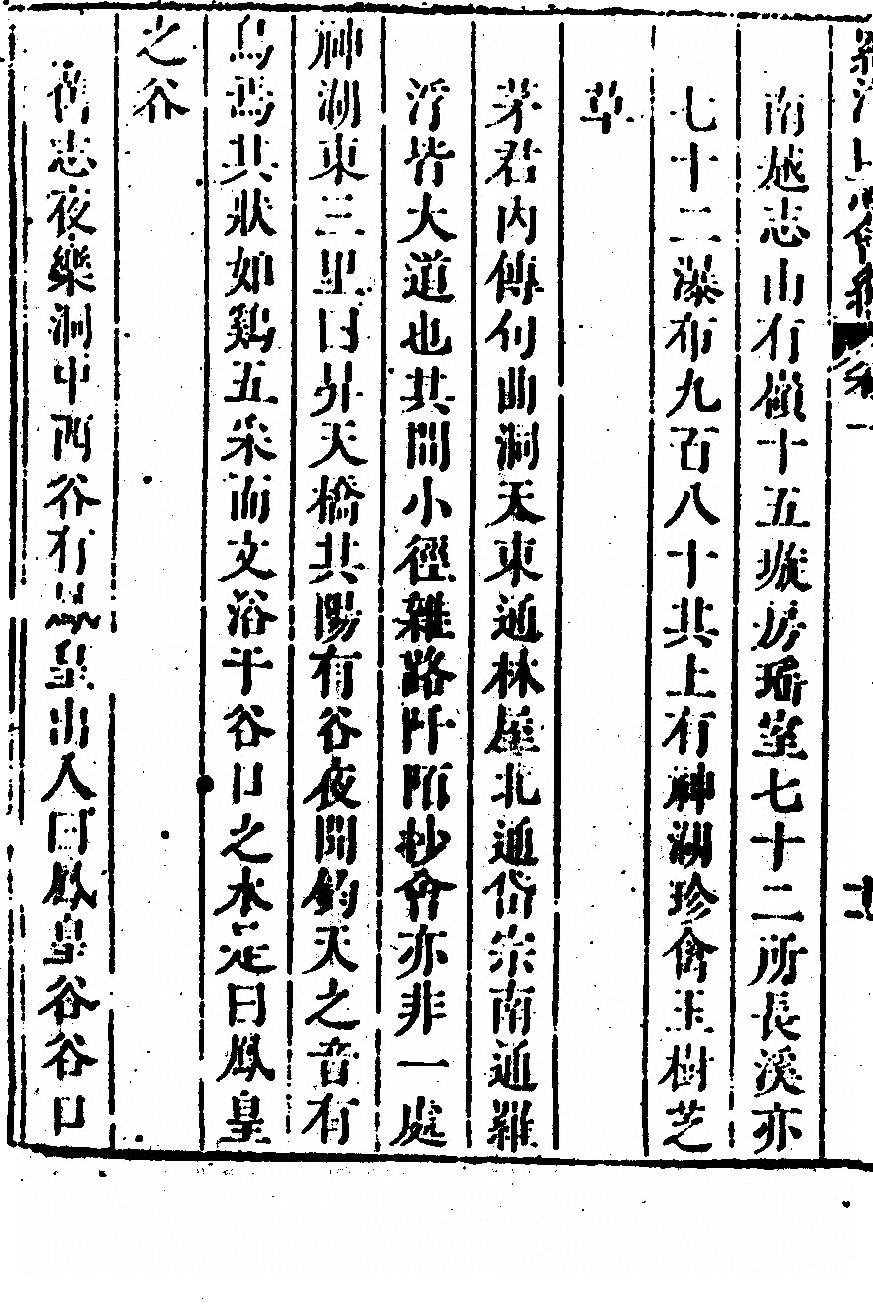 南越志山有嶺十五璇房瑤室七十二所長溪亦
七十二瀑布九百八十其上有神湖珍禽玉樹芝
草
茅君內傳句曲洞天東通林屋北通岱宗南通羅
浮皆大道也其間小徑雜路阡陌抄會亦非一處
神湖東三里曰昇天橋其陽有谷夜聞鈞天之音有
鳥焉其狀如鷄五采而文浴于谷口之水是曰鳳皇
之谷
舊志夜樂洞中西谷有鳳皇出入曰鳳皇谷谷口